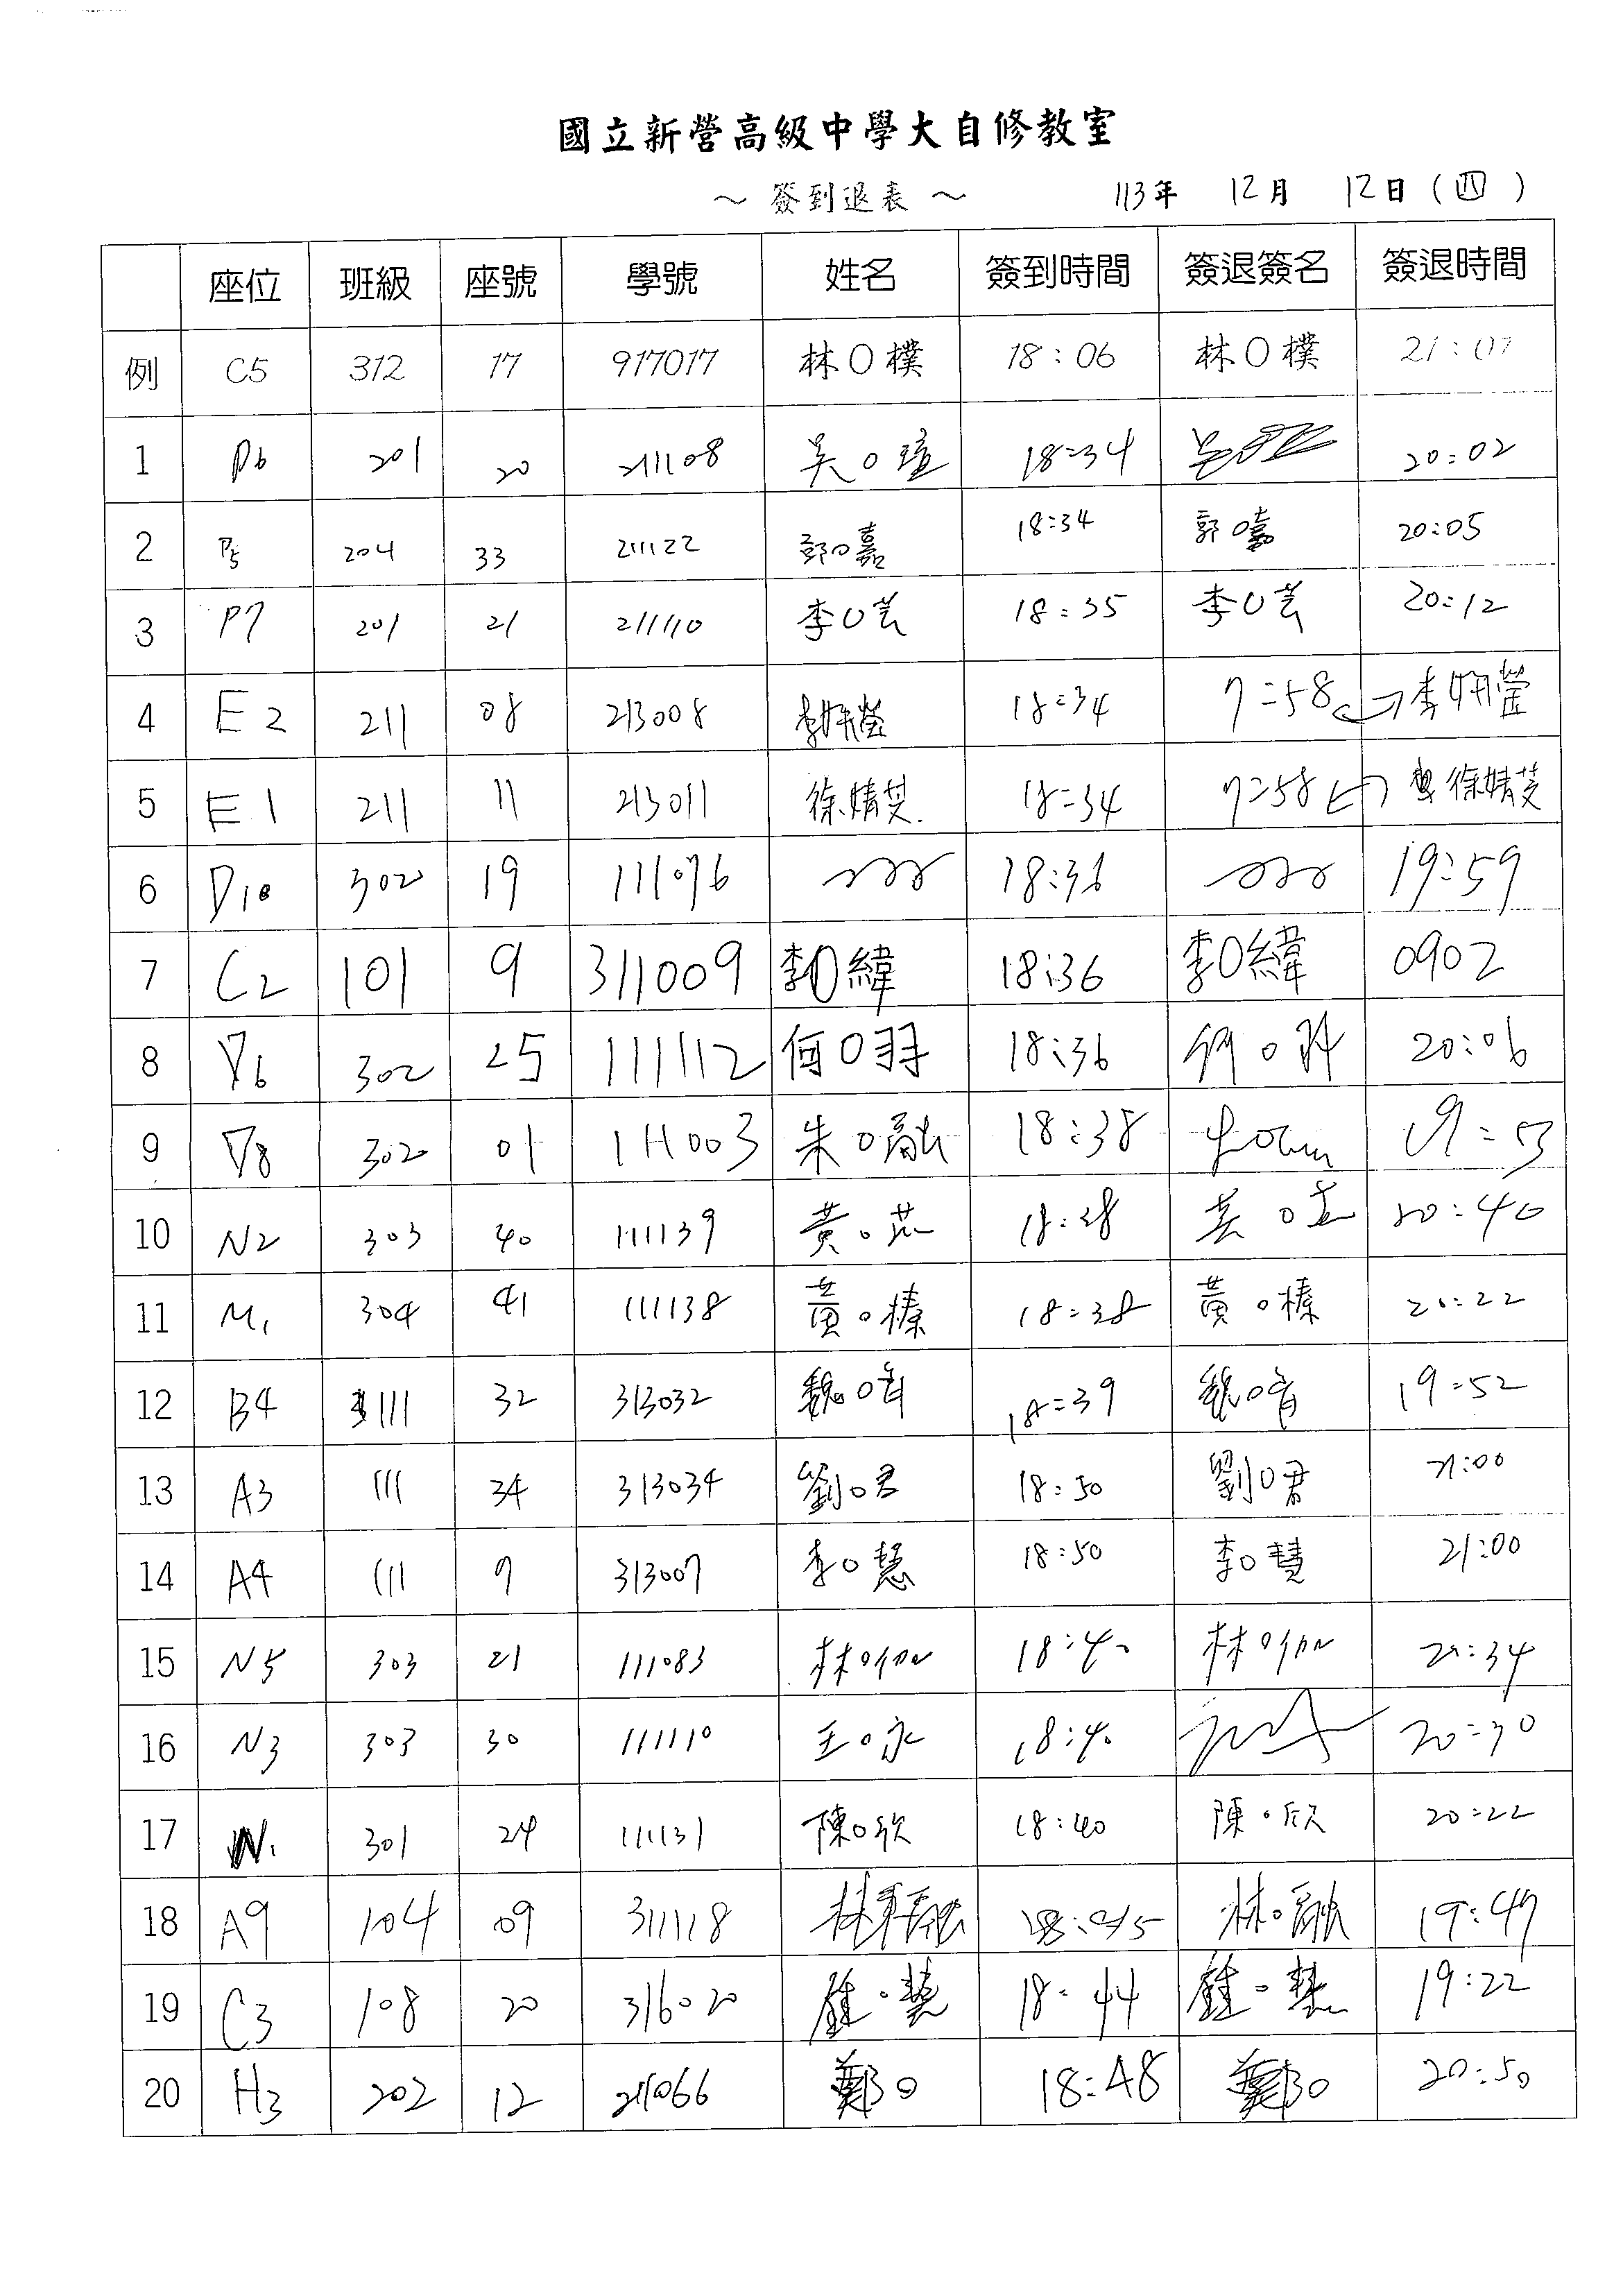 國立新營高級中學大自修教室
～ 簽到退表 ～ 113年 12月 12日 (四)
座位 班級 座號 學號 姓名 簽到時間 簽退簽名 簽退時間
例 C5 312 17 917017 林O樸 18:06 林O樸 21:07
1 P6 201 20 211108 吳O瑄 18:34 20:02
2 P5 204 33 211122 郭O嘉 18:34 郭O嘉 20:05
3 P7 201 21 211110 李O芸 18:35 李O芸 20:12
4 E2 211 08 213008 李妍瑩 18:34 7:58 李妍瑩
5 E1 211 11 213011 徐婧芠 18:34 7:58 徐婧芠
6 D10 302 19 111076 18:36 19:59
7 C2 101 9 311009 李O緯 18:36 李O緯 0902
8 D6 302 25 111112 何O羽 18:36 20:06
9 D8 302 01 111003 朱O融 18:38 19:53
10 N2 303 40 111139 黃O茊 18:38 20:40
11 M1 304 41 111138 黃O榛 18:38 黃O榛 20:22
12 B4 111 32 313032 魏O 18:39 魏O 19:52
13 A3 111 34 313034 劉O君 18:50 劉O君 21:00
14 A4 111 9 313009 李O慧 18:50 李O慧 21:00
15 N5 303 21 111083 林O伽 18:40 林O伽 21:34
16 N3 303 30 111110 王O永 18:40 20:30
17 N1 301 24 111131 陳O欣 18:40 陳O欣 20:22
18 A9 104 09 311118 林 融 18:45 林O融 19:47
19 C3 108 20 316020 鍾O慧 18:44 鍾O慧 19:22
20 H3 202 12 211066 鄭O 18:48 鄭O 20:50